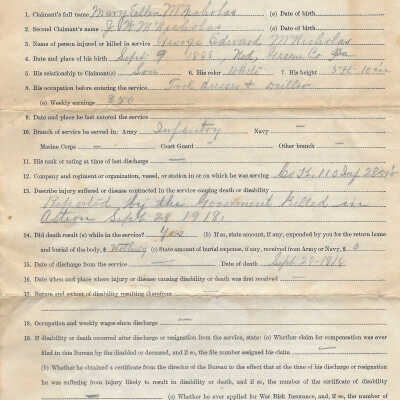 1. Claimant's full name Mary Ellen McNicholas (a) Date of birth
2. Second Claimant's name J. W. McNicholas (a) Date of birth
3. Name of person injured or killed in service George Edward McNicholas
4. Date and place of his birth Sept. 9 1888, Ned, Greene Co Pa
5. His relationship to Claimant(s) Son 6. His color White 7. His height 5 ft - 10 in
8. His occupation before entering the service Tool dresser & driller
(a) Weekly earnings
9. Date and place he last entered the service
10. Branch of service he served in: Army Infantry Navy —
Marine Corps — Coast Guard Other branch —
11. His rank or rating at time of last discharge —
12. Company and regiment or organization, vessel, or station in or on which he was serving Co K. 110 Inf 28
13. Describe injury suffered or disease contracted in the service causing death or disability
Reported by the Government Killed in
Action Sept 29 1918.
14. Did death result (a) while in the service? Yes (b) If so, state amount, if any, expended by you for the return home
and burial of the body, $ Nothing (c) State amount of burial expense, if any, received from Army or Navy, $ 0
15. Date of discharge from the service — Date of death Sept 29 - 1918
16. Date when and place where injury or disease causing disability or death was first received —
17. Nature and extent of disability resulting therefrom
18. Occupation and weekly wages since discharge —
19. If disability or death occurred after discharge or resignation from the service, state: (a) Whether claim for compensation was ever
filed in this Bureau by the disabled or deceased, and if so, the file number assigned his claim —
(b) Whether he obtained a certificate from the director of the Bureau to the effect that at the time of his discharge or resignation
he was suffering from injury likely to result in disability or death, and if so, the number of the certificate
— (c) Whether he ever applied for War Risk Insurance, and, if so, the number of